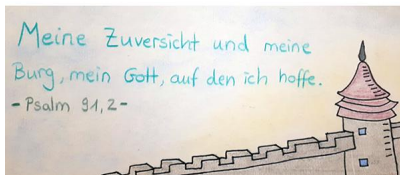 Meine Zuversicht und meine
Burg, mein Gott, auf den ich hoffe.
- Psalm 91,2-